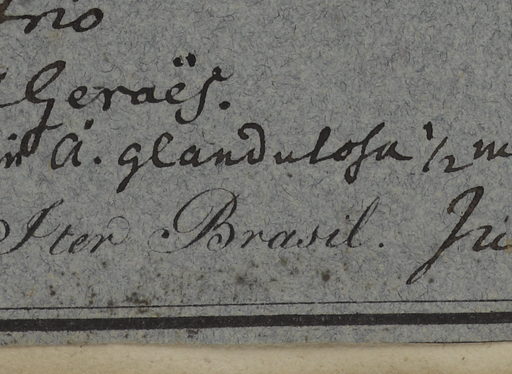 Geraës.
A. glandulosa 1/2 m
Iter Brasil.